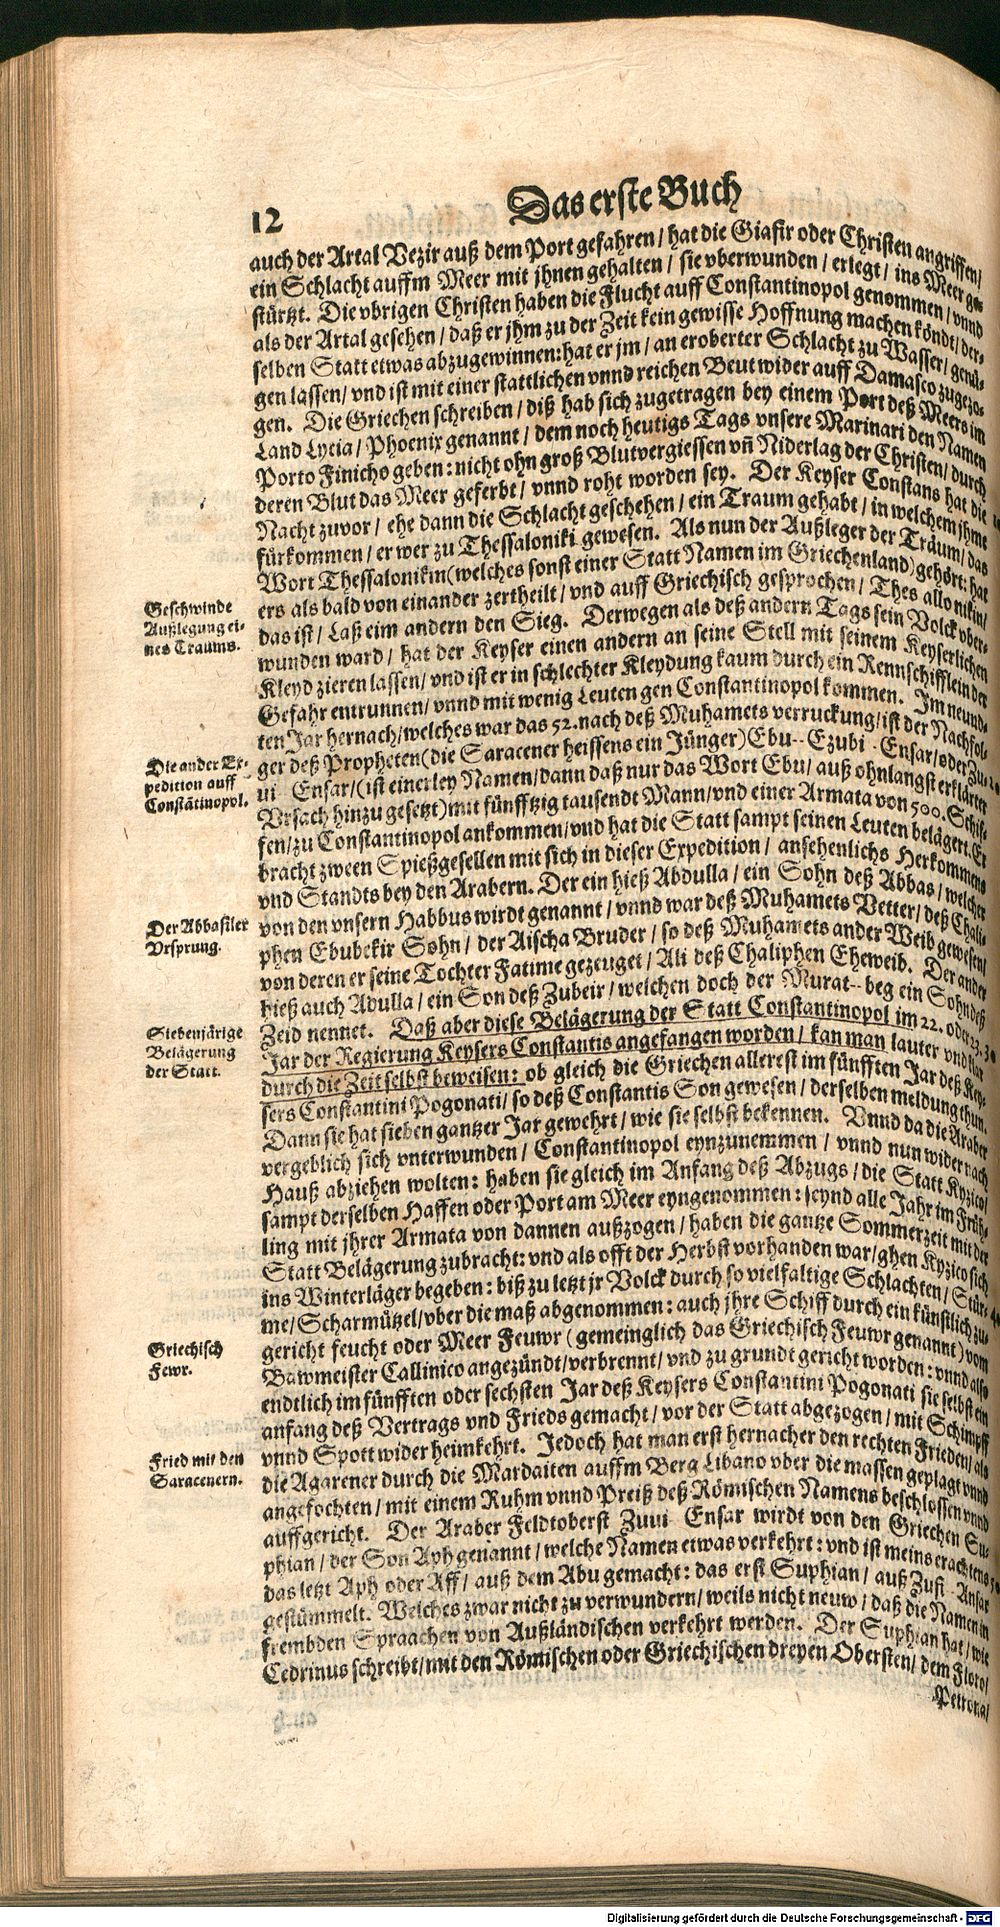 12
Das erste Buch
auch der Artal Vezir auß dem Port gefahren / hat die Giafir oder Christen angriffen /
ein Schlacht auffm Meer mit jhnen gehalten / sie vberwunden / erlegt / ins Meer ge-
stürtzt. Die vbrigen Christen haben die Flucht auff Constantinopol genommen / vnnd
als der Artal gesehen / daß er jhm zu der Zeit kein gewisse Hoffnung machen köndt / der-
selben Statt etwas abzugewinnen: hat er jm / an eroberter Schlacht zu Wasser / genü-
gen lassen / vnd ist mit einer stattlichen vnnd reichen Beut wider auff Damasco zugezo-
gen. Die Griechen schreiben / diß hab sich zugetragen bey einem Port deß Meers im
Land Lycia / Phoenix genannt / dem noch heutigs Tags vnsere Marinari den Namen
Porto Finicho geben: nicht ohn groß Blutvergiessen vñ Niderlag der Christen / durch
deren Blut das Meer geferbt / vnnd roht worden sey. Der Keyser Constans hat die
Nacht zuvor / ehe dann die Schlacht geschehen / ein Traum gehabt / in welchem jhme
fürkommen / er wer zu Thessaloniki gewesen. Als nun der Außleger der Träum / das
Wort Thessalonikin (welches sonst einer Statt Namen im Griechenland) gehört: hat
ers als bald von einander zertheilt / vnd auff Griechisch gesprochen / Thes allo nikin /
Geschwinde
Außlegung ei-
nes Traums.
das ist / Laß eim andern den Sieg. Derwegen als deß andern Tags sein Volck vber-
wunden ward / hat der Keyser einen andern an seine Stell mit seinem Keyserlichen
Kleyd zieren lassen / vnd ist er in schlechter Kleydung kaum durch ein Rennschifflein der
Gefahr entrunnen / vnnd mit wenig Leuten gen Constantinopol kommen. Im neund-
ten Jar hernach / welches war das 52. nach deß Muhamets verruckung / ist der Nachfol-
Die ander Ex-
pedition auff
Constãtinopol.
ger deß Propheten (die Saracener heissens ein Jünger) Ebu-Ezubi-Ensar / oder Zu-
ui Ensar / (ist einerley Namen / dann daß nur das Wort Ebu / auß ohnlangst erklärter
Vrsach hinzu gesetzt) mit fünfftzig tausendt Mann / vnd einer Armata von 500. Schif-
fen / zu Constantinopol ankommen / vnd hat die Statt sampt seinen Leuten belägert. Er
bracht zween Spießgesellen mit sich in dieser Expedition / ansehenlichs Herkommens
vnd Standts bey den Arabern. Der ein hieß Abdulla / ein Sohn deß Abbas / welcher
Der Abbasiler
Vrsprung.
von den vnsern Habbus wirdt genannt / vnnd war deß Muhamets Vetter / deß Chali-
phen Ebubekir Sohn / der Aischa Bruder / so deß Muhamets ander Weib gewesen /
von deren er seine Tochter Fatime gezeuget / Ali deß Chaliphen Eheweib. Der ander
hieß auch Abdulla / ein Son deß Zubeir / welchen doch der Murat-beg ein Sohn deß
Siebenjärige
Belägerung
der Statt.
Zeid nennet. Daß aber diese Belägerung der Statt Constantinopol im 22. oder 23.
Jar der Regierung Keysers Constantis angefangen worden / kan man lauter vnd klar
durch die Zeit selbst beweisen: ob gleich die Griechen allererst im fünfften Jar deß Key-
sers Constantini Pogonati / so deß Constantis Son gewesen / derselben meldung thun.
Dann sie hat sieben gantzer Jar gewehrt / wie sie selbst bekennen. Vnnd da die Araber
vergeblich sich vnterwunden / Constantinopol eynzunemmen / vnnd nun wider nach
Hauß abziehen wolten: haben sie gleich im Anfang deß Abzugs / die Statt Kyzico /
sampt derselben Haffen oder Port am Meer eyngenommen: seynd alle Jahr im Früh-
ling mit jhrer Armata von dannen außzogen / haben die gantze Sommerzeit mit der
Statt Belägerung zubracht: vnd als offt der Herbst vorhanden war / ghen Kyzico sich
ins Winterläger begeben: biß zu letzt jr Volck durch so vielfaltige Schlachten / Stür-
me / Scharmützel / vber die maß abgenommen: auch jhre Schiff durch ein künstlich zu-
Griechisch
Fewr.
gericht feucht oder Meer Feuwr (gemeinglich das Griechisch Feuwr genannt) vom
Bawmeister Callinico angezündt / verbrennt / vnd zu grundt gericht worden: vnnd also
endtlich im fünfften oder sechsten Jar deß Keysers Constantini Pogonati sie selbst ein
anfang deß Vertrags vnd Frieds gemacht / vor der Statt abgezogen / mit Schimpff
Fried mit den
Saracenern.
vnnd Spott wider heimkehrt. Jedoch hat man erst hernacher den rechten Frieden / als
die Agarener durch die Mardaiten auffm Berg Libano vber die massen geplagt vnnd
angefochten / mit einem Ruhm vnnd Preiß deß Römischen Namens beschlossen vnnd
auffgericht. Der Araber Feldtoberst Zuui Ensar wirdt von den Griechen Su-
phian / der Son Aph genannt / welche Namen etwas verkehrt: vnd ist meins erachtens
das letzt Aph oder Aff / auß dem Abu gemacht: das erst Suphian / auß Zufi Ansar
gestümmelt. Welches zwar nicht zu verwundern / weils nicht neuw / daß die Namen in
frembden Spraachen von Außländischen verkehrt werden. Der Suphian hat / wie
Cedrinus schreibt / mit den Römischen oder Griechischen dreyen Obersten / dem Floro /
Petrona /
Digitalisierung gefördert durch die Deutsche Forschungsgemeinschaft - DFG